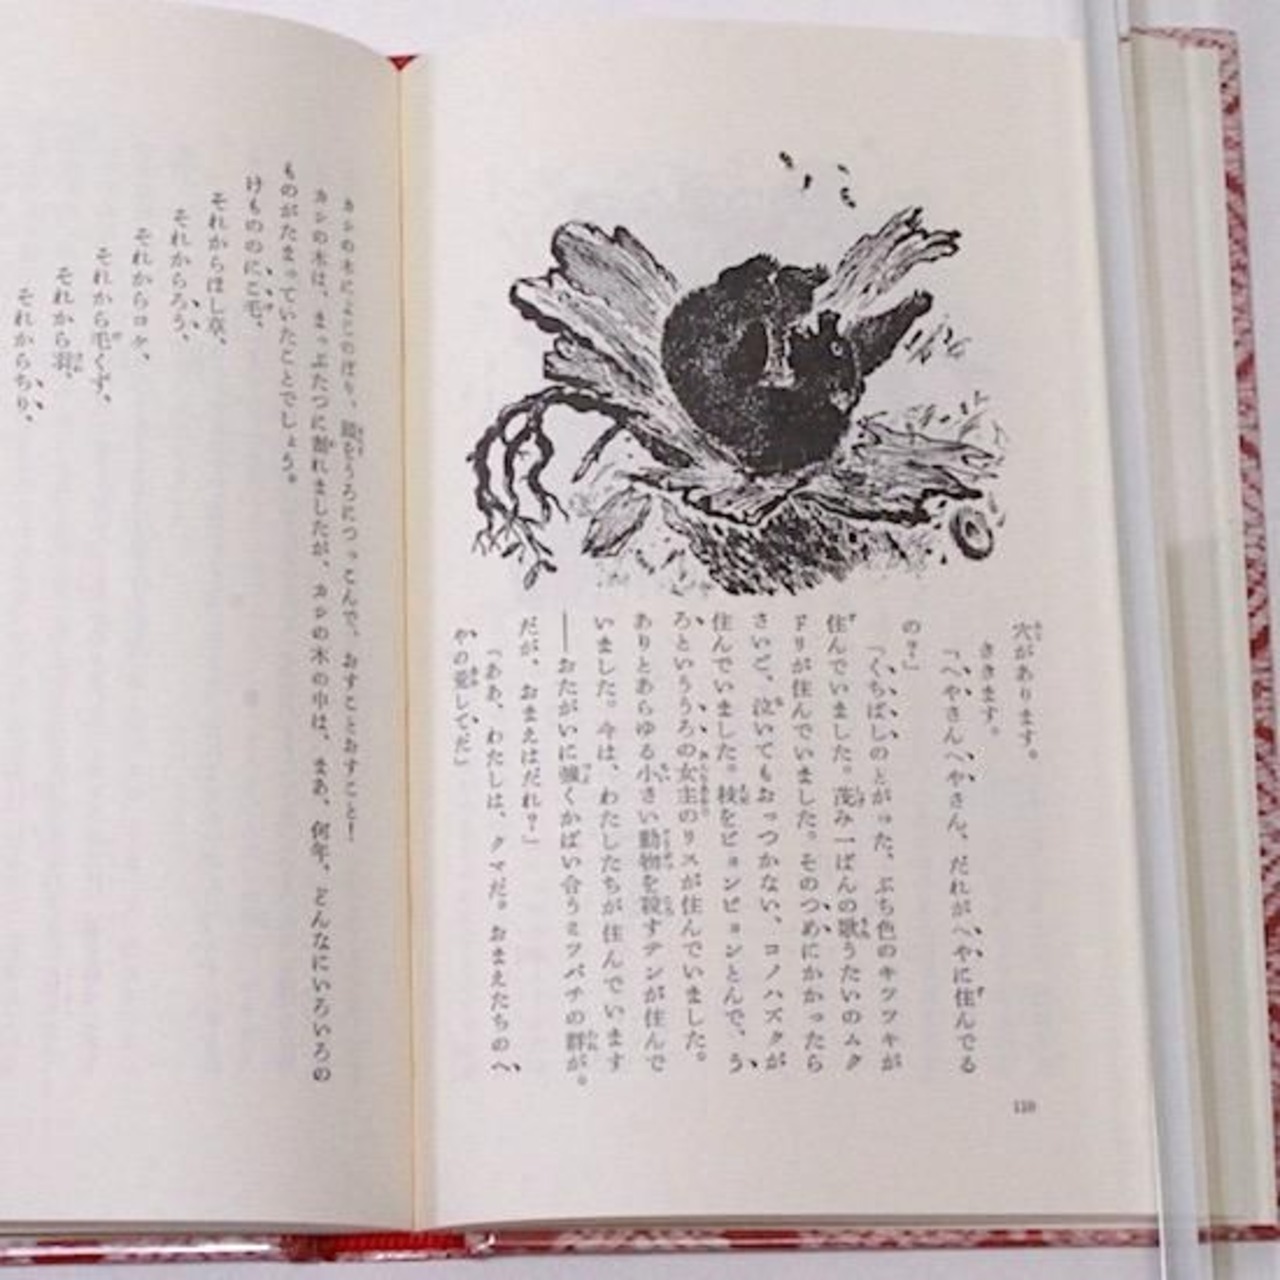 穴があります。
ききます。
「へやさんへやさん、だれがへやに住んでる
の?」
「くちばしのとがった、ぶち色のキツツキが
住んでいました。茂み一ばんの歌うたいのムク
ドリが住んでいました。そのつめにかかったら
さいご、泣いてもおっつかない、コノハズクが
住んでいました。枝をピョンピョンとんで、う
ろといううろの女主のリスが住んでいました。
ありとあらゆる小さい動物を殺すテンが住んで
いました。今は、わたしたちが住んでいます
――おたがいに強くかばい合うミツバチの群が。
だが、おまえはだれ?」
「ああ、わたしは、クマだ。おまえたちのへ
やの荒してだ」
110
カシの木によじのぼり、頭をうろにつっこんで、おすことおすこと!
カシの木は、まっぷたつに割れましたが、カシの木の中は、まあ、何年、どんなにいろいろの
ものがたまっていたことでしょう。
けもののにこ毛、
それからほし草、
それからろう、
それからコケ、
それから毛くず、
それから羽、
それからちり、